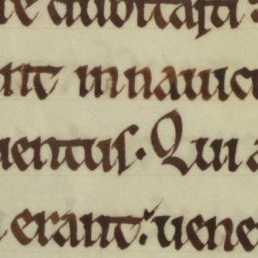 re dubitasti
nt in nauicu
uentus. Qui a
erant: uene